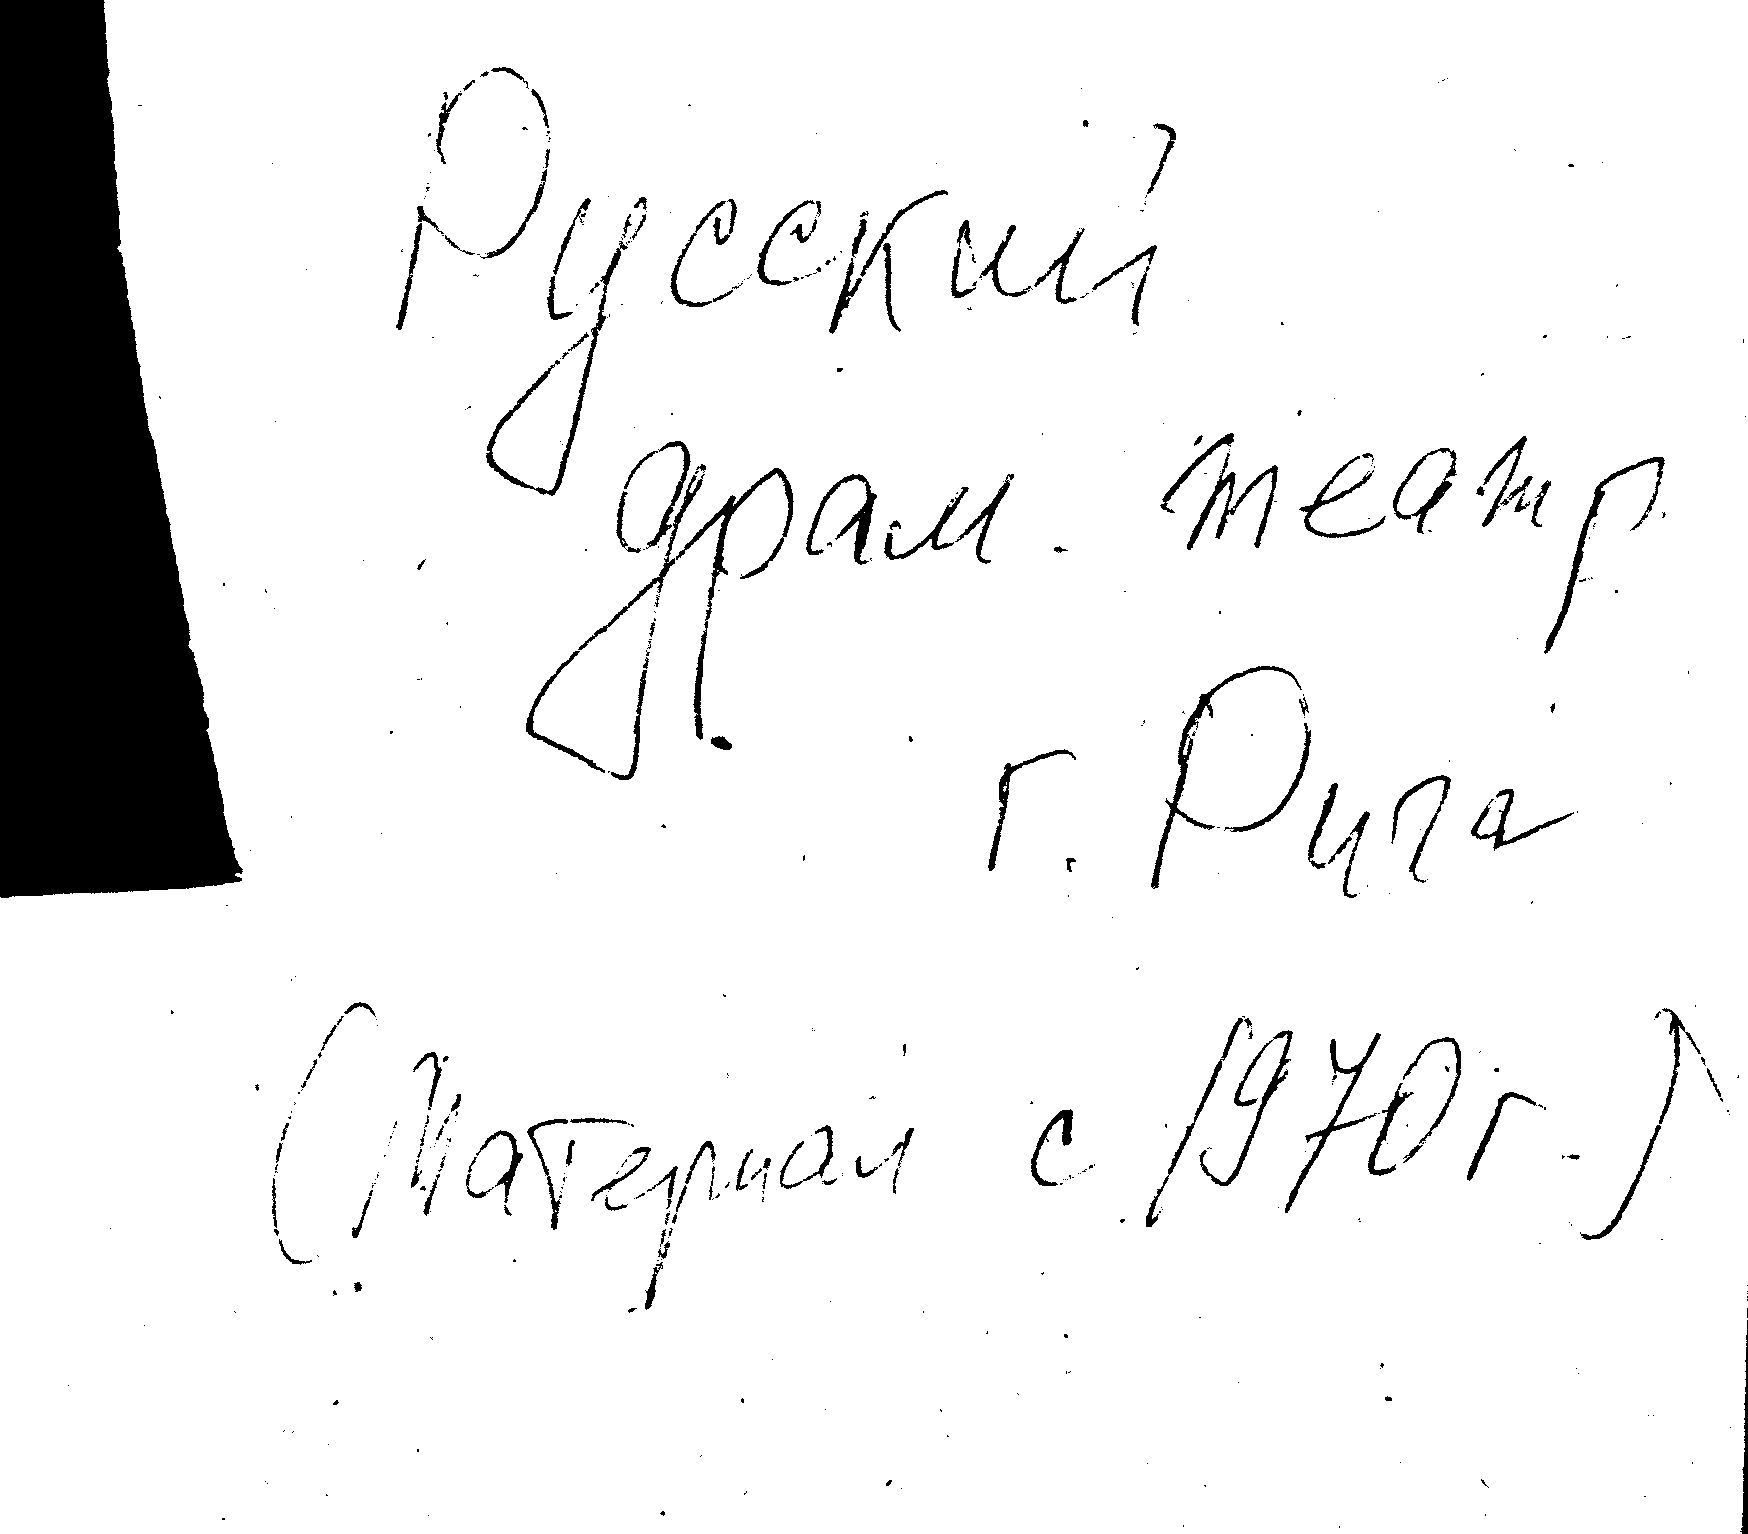 Русский
драм. театр
г. Рига
(Материал с 1970 г.)